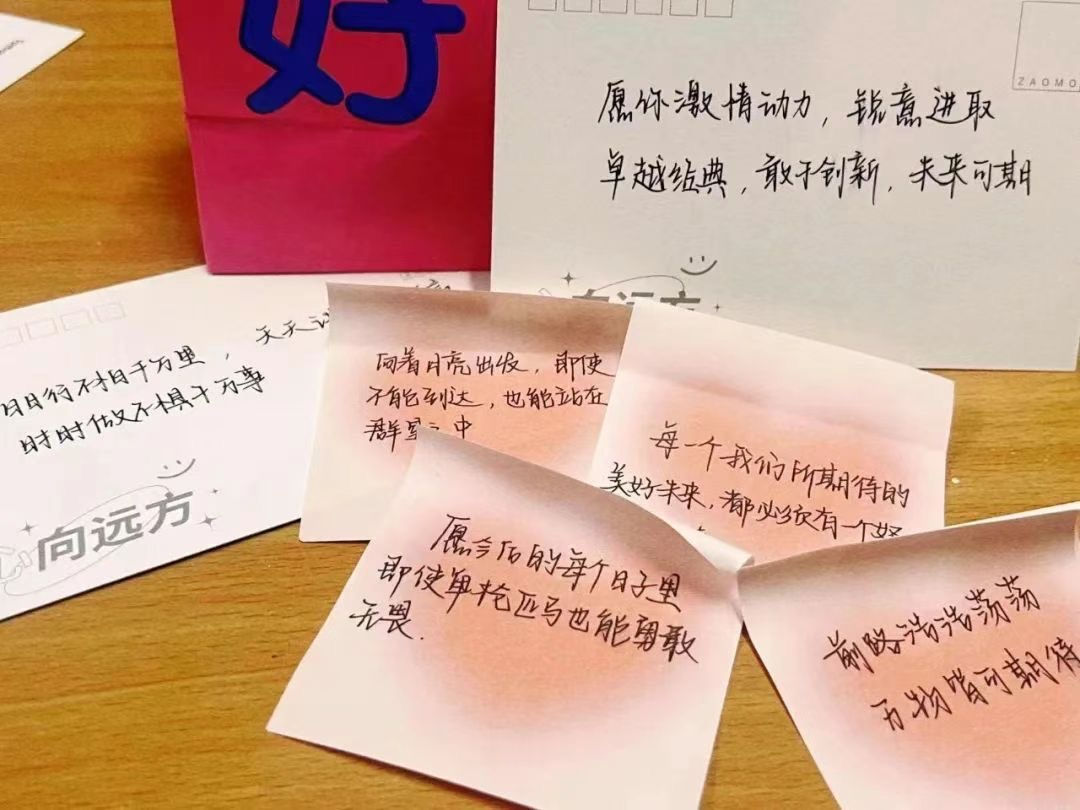 好
ZAOMO
愿你激情动力，锐意进取
卓越经典，敢于创新，未来可期
向远方
日日行不怕千万里，天天
时时做不惧千万事
心向远方
向着月亮出发，即使
不能到达，也能站在
群星之中
每一个我们所期待的
美好未来，都必须有一个
愿今后的每个日子里
即使单枪匹马也能勇敢
无畏.
前路浩浩荡荡
万物皆可期待